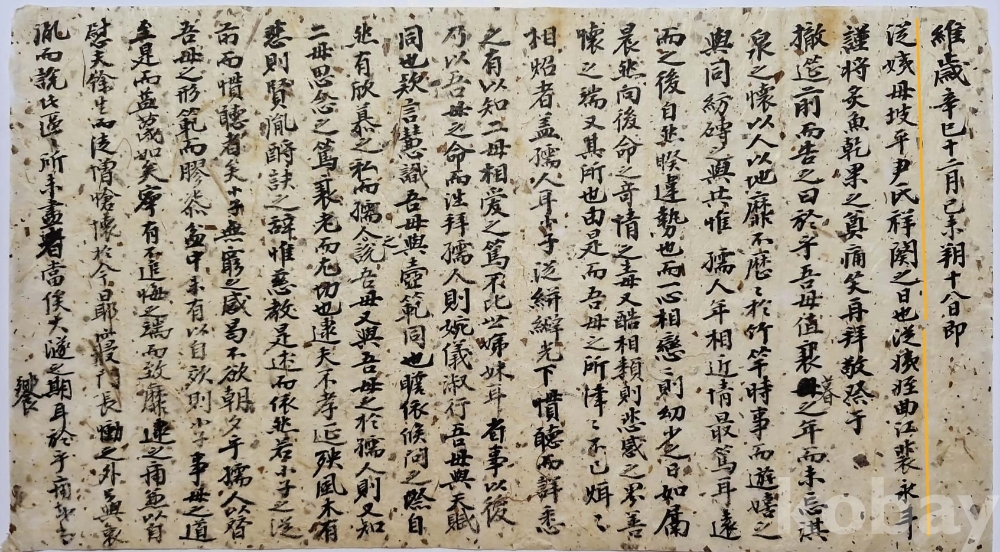 維歲辛巳十二月己未朔十八日即
從姨母坡平尹氏祥闋之日也從姨姪曲江裴永斗
謹將炙魚乾果之奠痛哭再拜敬祭于
撤筵前而告之曰於乎吾母值衰暮之年而未忘淇
泉之懷以人以地靡不歷歷於竹竿時事而遊嬉之
與同紡磚之與共惟孺人年相近情最篤耳遠
而之後自然睽違勢也而一心相戀戀則幼少之日如屬
晨然向後命之奇情之毒又酷相類則悲感之累善
懷之端又其所也由是而吾母之所惓惓不已娓娓
相照者盖孺人耳小子從絣縱光下慣聽而詳悉
之有以知二母相愛之篤不比世娣妹耳省事以後
乃以吾母之命而往拜孺人則婉儀淑行吾母與天賦
同也欵言慧識吾母與壼範同也瞻依候問之際自
然有欣慕之私而孺人之說吾母又與吾母之於孺人則又知
二母思念之篤衰老而尤切也逮夫不孝延殃風木有
悲則賢胤酹訣之辭惟慈教是述而依然若小子之從
前而慣聽者矣小子無窮之感曷不欲朝夕于孺人以替
吾母之形範而膠添盆中未有以自效則小子事母之道
至是而益蔑如矣寧有不追悔之端而致靡逮之痛兼以自
慰夫餘生而徒憎愴懷於今日耶襄門長慟之外孟與衆
胤而說此邊所未盡者當俟大遂之期耳於乎痛哉尚
饗
kobay